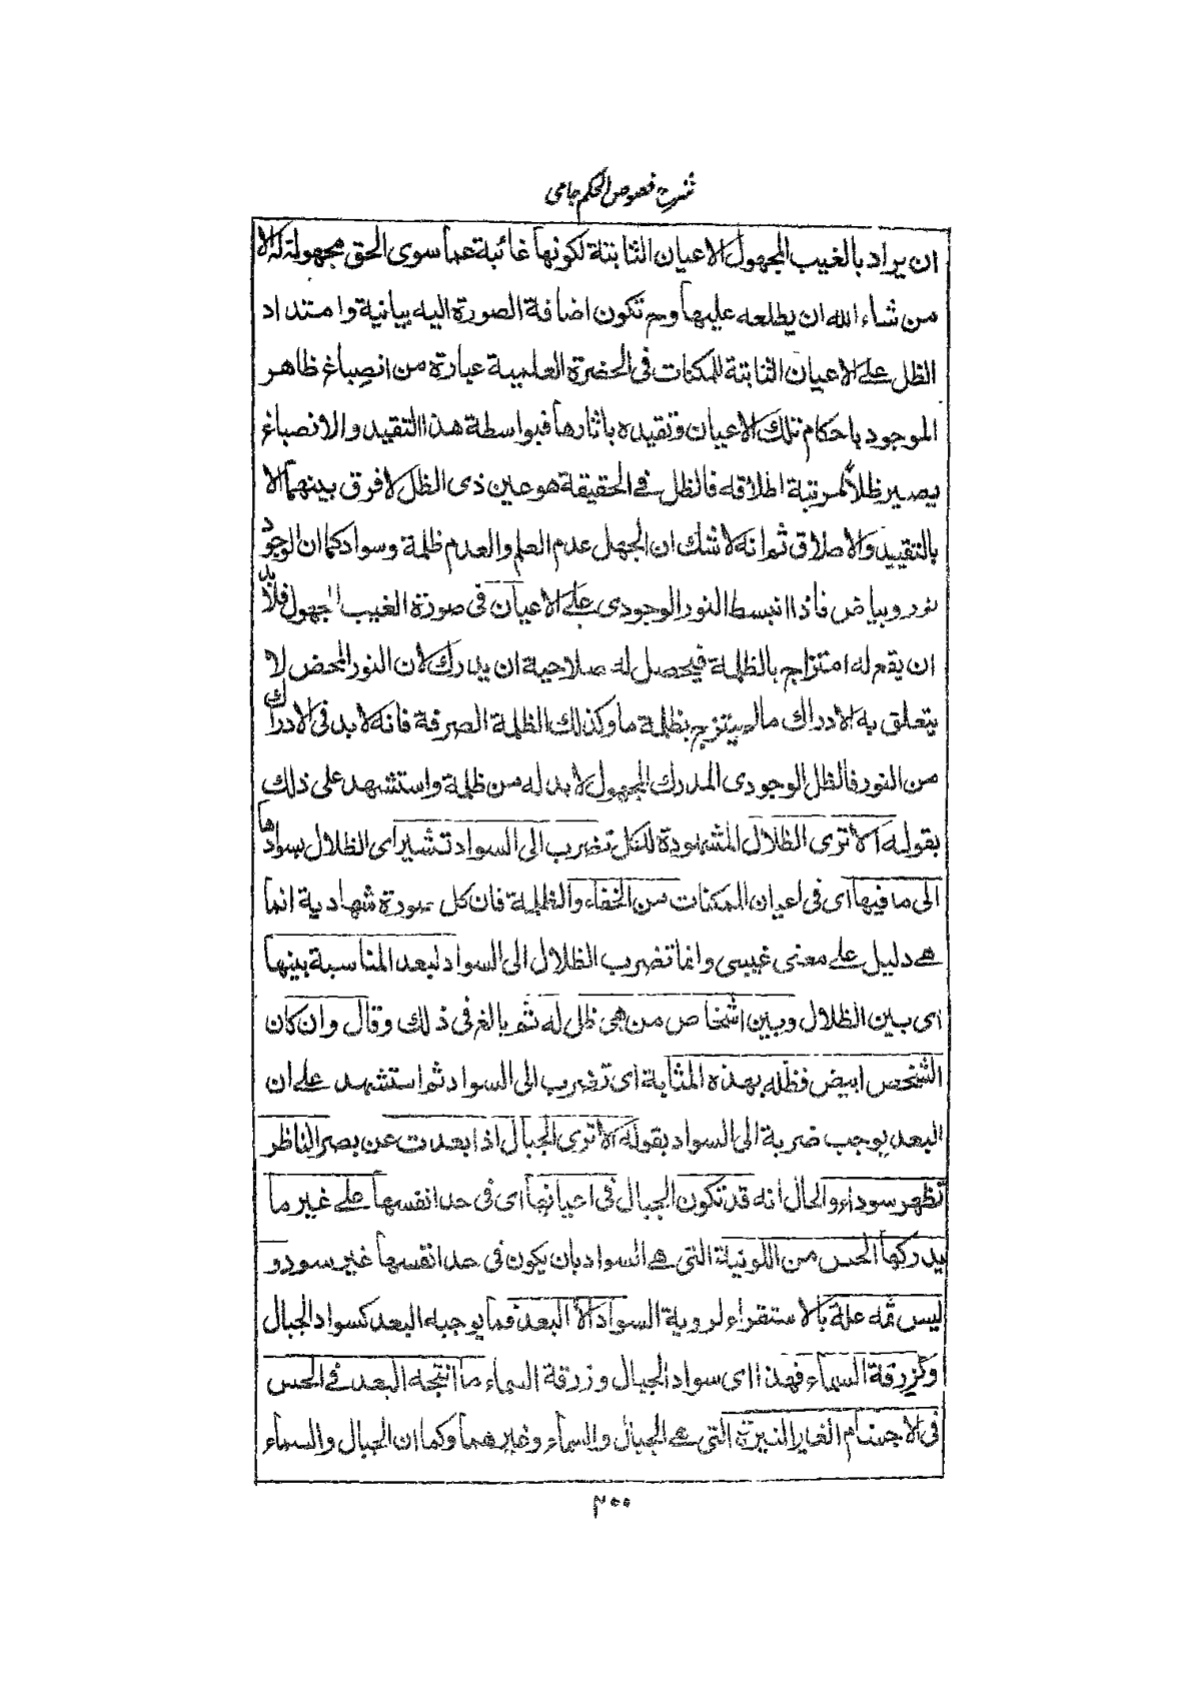 شرح فصوص الحكم جامى
ان يراد بالغيب المجهول الاعيان الثابتة لكونها غائبة عما سوى الحق مجهولة له الا
من شاء الله ان يطلعه عليها وح تكون اضافة الصورة اليه بيانية وامتداد
الظل على الاعيان الثابتة للمكنات فى الحضرة العلمية عبارة من انصباغ ظاهر
الموجود باحكام تلك الاعيان وتقيده باثارها فبواسطة هذا التقيد والانصباغ
يصير ظلاً لمرتبة اطلاقه فالظل فى الحقيقة هو عين ذى الظل لا فرق بينهما الا
بالتقييد والاطلاق ثم انه لا شك ان الجهل عدم العلم والعدم ظلمة وسواد كما ان الوجود
نور وبياض فاذا انبسط النور الوجودى على الاعيان فى صورة الغيب المجهول فلا بد
ان يقع له امتزاج بالظلمة فيحصل له صلاحية ان يدرك لان النور المحض لا
يتعلق به الادراك ما لم يمتزج بظلمة ما وكذلك الظلمة الصرفة فانه لا بد فى الادراك
من النور فالظل الوجودى المدرك المجهول لا بد له من ظلمة واستشهد على ذلك
بقوله الا ترى الظلال المشهودة للكل تضرب الى السواد تشير اى الظلال بسوادها
الى ما فيها اى فى اعيان الممكنات من الخفاء والظلمة فان كل صورة شهادية انما
هى دليل على معنى غيبى وانما تضرب الظلال الى السواد لبعد المناسبة بينها
اى بين الظلال وبين اشخاص من هى ظل له ثم بالغ فى ذلك وقال وان كان
الشخص ابيض فظله بهذه المثابة اى تضرب الى السواد ثم استشهد على ان
البعد يوجب ضربة الى السواد بقوله الا ترى الجبال اذا بعدت عن بصر الناظر
تظهر سوداء والحال انه قد تكون الجبال فى اعيانها اى فى حد انفسها على غير ما
يدركها الحس من اللونية التى هى السواد بان يكون فى حد انفسها غير سود و
ليس ثمه علة بالاستقراء لروية السواد الا البعد فما يوجبه البعد كسواد الجبال
وكزرقة السماء فهذا اى سواد الجبال وزرقة السماء ما انتجه البعد فى الحس
فى الاجسام الغير النيرة التى هى الجبال والسماء وغيرهما وكما ان الجبال والسماء
٢٠٠